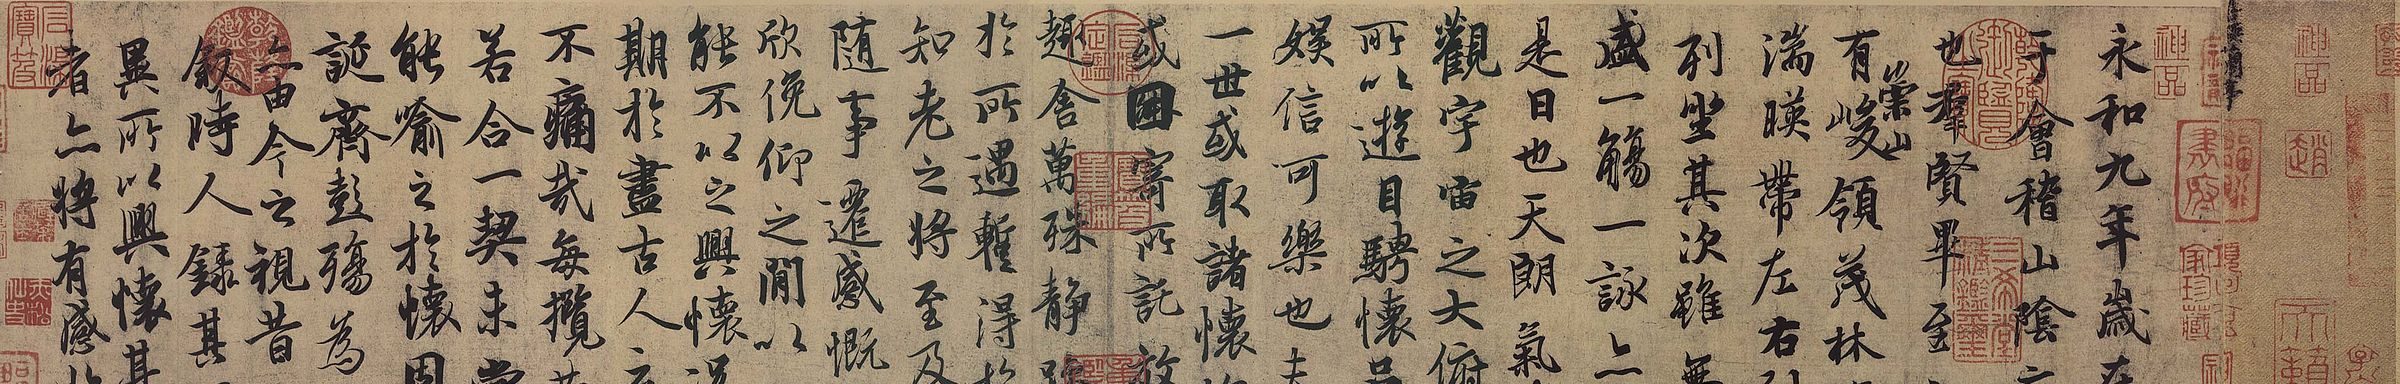 神品
趙
神品
永和九年歲在
于會稽山陰之
也羣賢畢至
有崇山峻領茂林
湍暎帶左右引
列坐其次雖無
盛一觴一詠亦
是日也天朗氣
觀宇宙之大俯
所以遊目騁懷足
娛信可樂也夫
一世或取諸懷
或因寄所託放
趣舍萬殊静躁
於所遇蹔得於
知老之將至及
隨事遷感慨
欣俛仰之閒以
能不以之興懷況
期於盡古人云
不痛哉每攬昔
若合一契未嘗
能喻之於懷固
誕齊彭殤為
亦由今之視昔
叙時人錄其
異所以興懷其
者亦將有感於